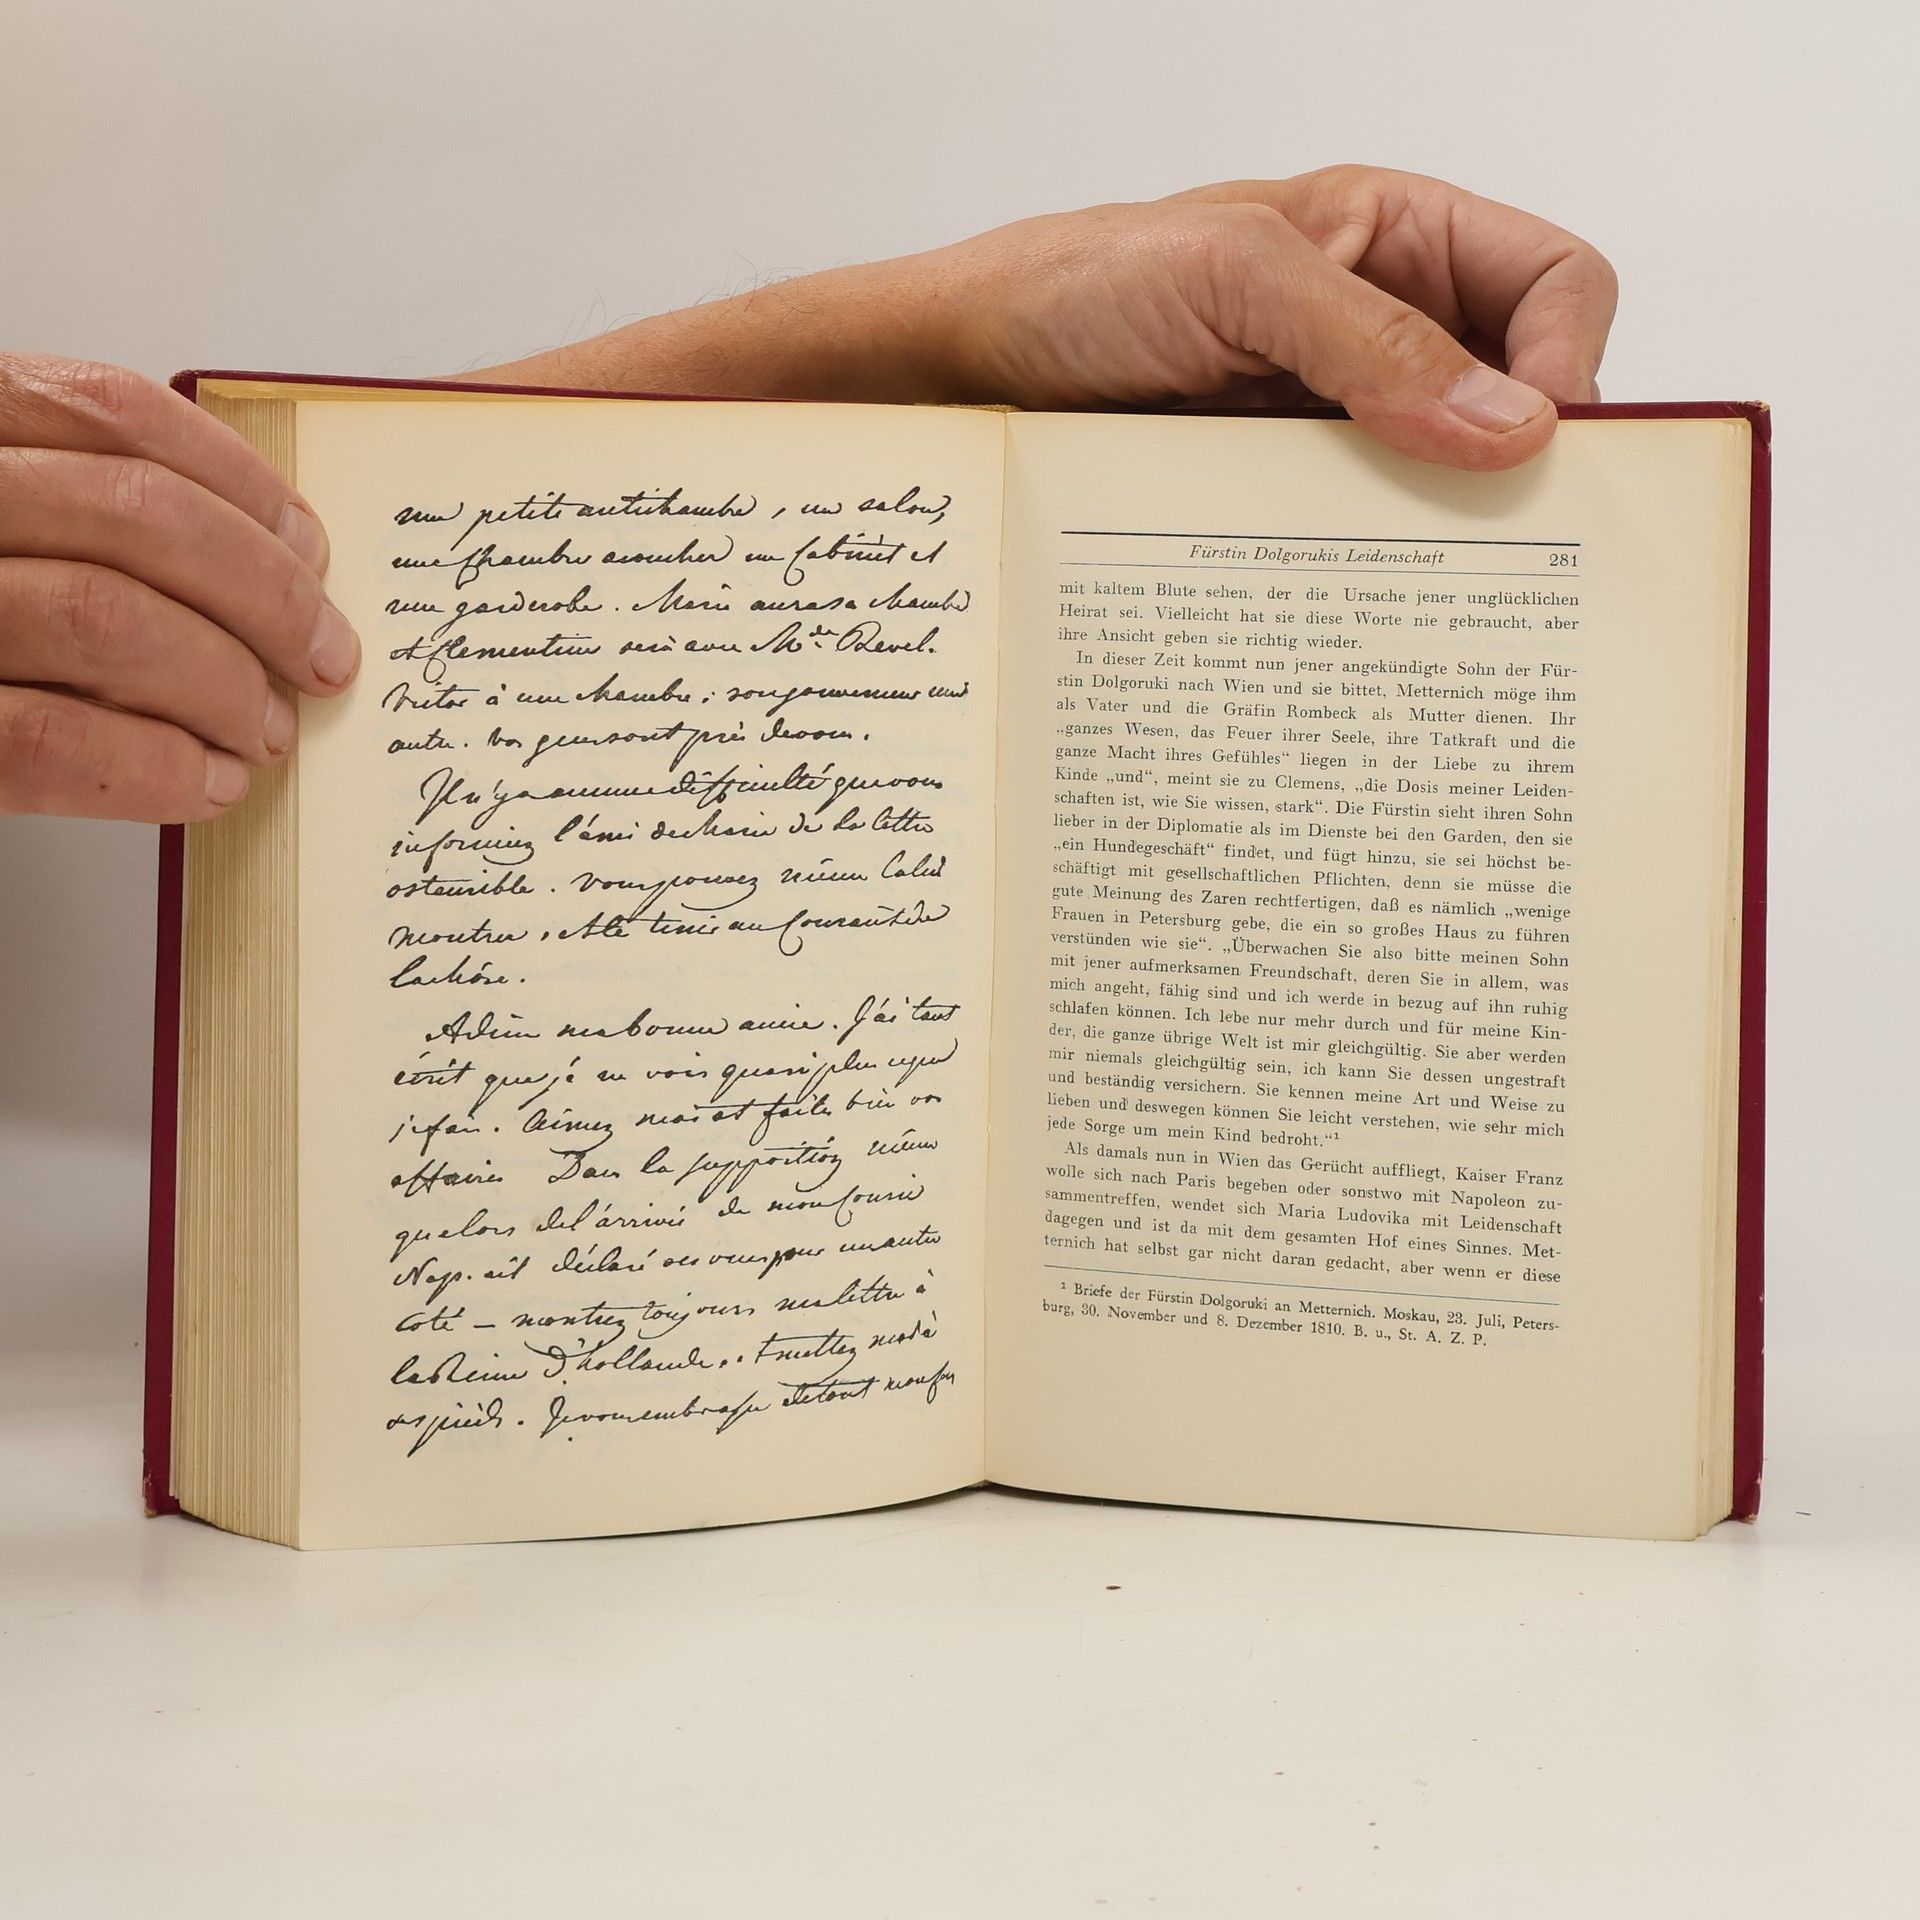 une petite antichambre, un salon,
une Chambre acoucher un Cabinet et
une garderobe. Marie aura sa chambre
et Clementine sera avec Mde Revel.
Victor à une chambre; son gouverneur une
autre. vos gens sont près de vous.
Il n'y a aucune difficulté que vous
informiez l'ami de la lettre
ostensible. vous pouvez même la lui
montrer, et le tenir au Courant de
la chose.
Adieu ma bonne amie. J'ai tant
écrit que je ne vois quasi plus ce que
je fais. Aimez moi et faites bien vos
affaires Dans la supposition même
que lors de l'arrivée de mon Courier
Nap. ait déclaré ses vues pour un autre
coté — montrez toujours ma lettre à
la Reine d'hollande. mettez moi à
ses pieds. Je vous embrasse de tout mon
Fürstin Dolgorukis Leidenschaft 281
mit kaltem Blute sehen, der die Ursache jener unglücklichen
Heirat sei. Vielleicht hat sie diese Worte nie gebraucht, aber
ihre Ansicht geben sie richtig wieder.
In dieser Zeit kommt nun jener angekündigte Sohn der Für-
stin Dolgoruki nach Wien und sie bittet, Metternich möge ihm
als Vater und die Gräfin Rombeck als Mutter dienen. Ihr
„ganzes Wesen, das Feuer ihrer Seele, ihre Tatkraft und die
ganze Macht ihres Gefühles“ liegen in der Liebe zu ihrem
Kinde „und“, meint sie zu Clemens, „die Dosis meiner Leiden-
schaften ist, wie Sie wissen, stark“. Die Fürstin sieht ihren Sohn
lieber in der Diplomatie als im Dienste bei den Garden, den sie
„ein Hundegeschäft“ findet, und fügt hinzu, sie sei höchst be-
schäftigt mit gesellschaftlichen Pflichten, denn sie müsse die
gute Meinung des Zaren rechtfertigen, daß es nämlich „wenige
Frauen in Petersburg gebe, die ein so großes Haus zu führen
verstünden wie sie“. „Überwachen Sie also bitte meinen Sohn
mit jener aufmerksamen Freundschaft, deren Sie in allem, was
mich angeht, fähig sind und ich werde in bezug auf ihn ruhig
schlafen können. Ich lebe nur mehr durch und für meine Kin-
der, die ganze übrige Welt ist mir gleichgültig. Sie aber werden
mir niemals gleichgültig sein, ich kann Sie dessen ungestraft
und beständig versichern. Sie kennen meine Art und Weise zu
lieben und deswegen können Sie leicht verstehen, wie sehr mich
jede Sorge um mein Kind bedroht.“¹
Als damals nun in Wien das Gerücht auffliegt, Kaiser Franz
wolle sich nach Paris begeben oder sonstwo mit Napoleon zu-
sammentreffen, wendet sich Maria Ludovika mit Leidenschaft
dagegen und ist da mit dem gesamten Hof eines Sinnes. Met-
ternich hat selbst gar nicht daran gedacht, aber wenn er diese
¹ Briefe der Fürstin Dolgoruki an Metternich. Moskau, 23. Juli, Peters-
burg, 30. November und 8. Dezember 1810. B. u., St. A. Z. P.